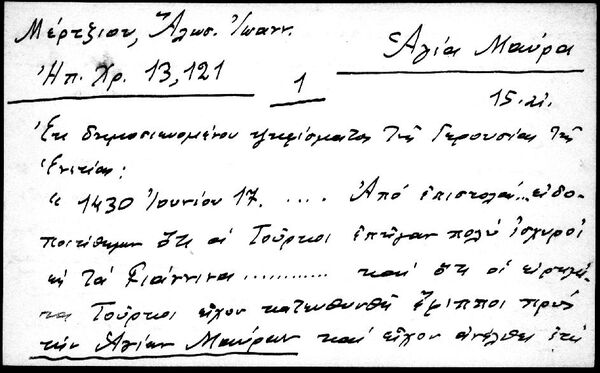 Μέρτζιου, Ἅλωσ. Ἰωανν.
Ἁγία Μαύρα
Ἠπ. Χρ. 13, 121
1
15. αἰ.
Ἐκ δημοσιευομένου ψηφίσματος τῆς Γερουσίας τῆς
Ἑνετίας:
" 1430 Ἰουνίου 17. .... Ἀπό ἐπιστολάς... εἰδο-
ποιήθημεν ὅτι οἱ Τοῦρκοι ἐπῆγαν πολύ ἰσχυροί
εἰς τά Γιάννινα ............ καί ὅτι οἱ εἰρημέ-
νοι Τοῦρκοι εἶχον κατευθυνθῆ ἔφιπποι πρός
τήν Ἁγίαν Μαύραν καί εἶχον ἀνέλθει